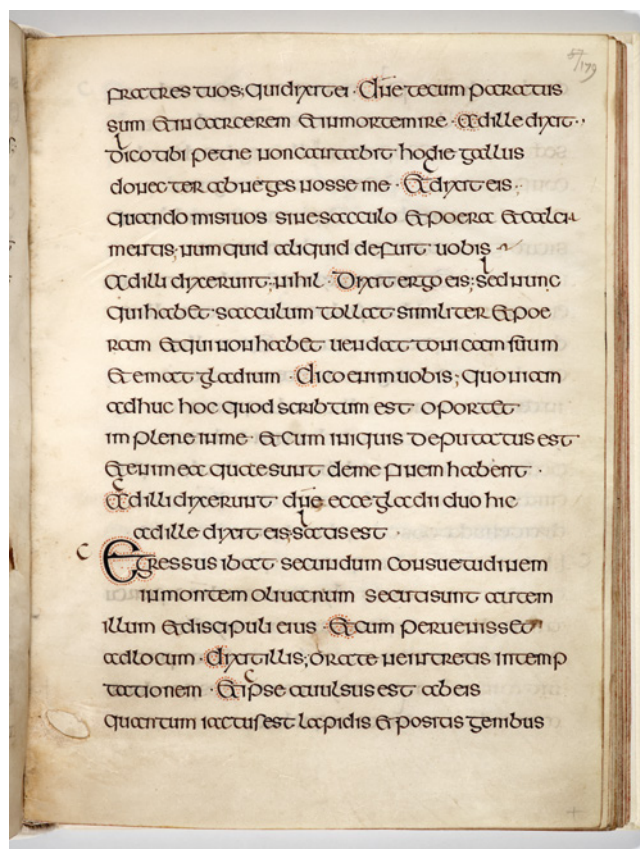 87/179
fratres tuos; qui dixit ei · dn̄e tecum paratus
sum & in carcerem & in mortem ire · ad ille dixit ·,
dico tibi petre non cantabit hodie gallus
donec ter abneges nosse me · & dixit eis ·
quando misi uos sine sacculo & poera & calcia
mentis; numquid aliquid defuit uobis
ad illi dixerunt; nihil · dixit ergo eis; sed nunc
qui hab& sacculum tollat similiter & poe
ram & qui non hab& uendat tonicam suum
& emat gladium · dico enim uobis; quoniam
adhuc hoc quod scribtum est oport&
implene in me · & cum iniquis deputatus est
& enim ea quae sunt de me finem habent ·
ad illi dixerunt dn̄e ecce gladii duo hic
ad ille dixit eis; satis est ·
Egressus ibat secundum consuetudinem
in montem oliuarum secuti sunt autem
illum & discipuli eius · & cum peruenisset
ad locum · dixit illis; orate ne intretis in temp
tationem · & ipse auulsus est ab eis
quantum iactus est lapidis & positis genibus